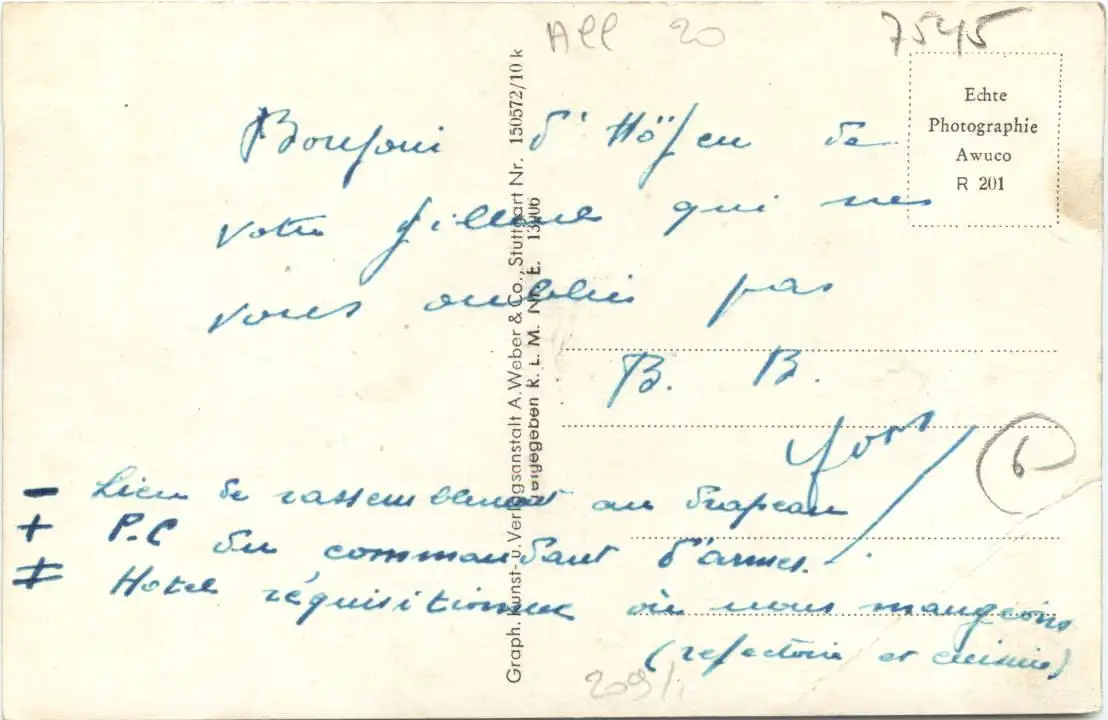 All 20
7545
Echte
Photographie
Awuco
R 201
Bonjour d'Höfen de
votre filleul qui ne
vous oublie pas
B. B.
Yves
6
— Lieu de rassemblement au drapeau
+ P.C du commandant d'armes.
‡ Hotel réquisitionné où nous mangeons
(refectoire et cuisine)
209/1
Graph. Kunst- u. Verlagsanstalt A. Weber & Co., Stuttgart Nr. 150572/10 k
Freigegeben R. L. M. Nr. E. 13906